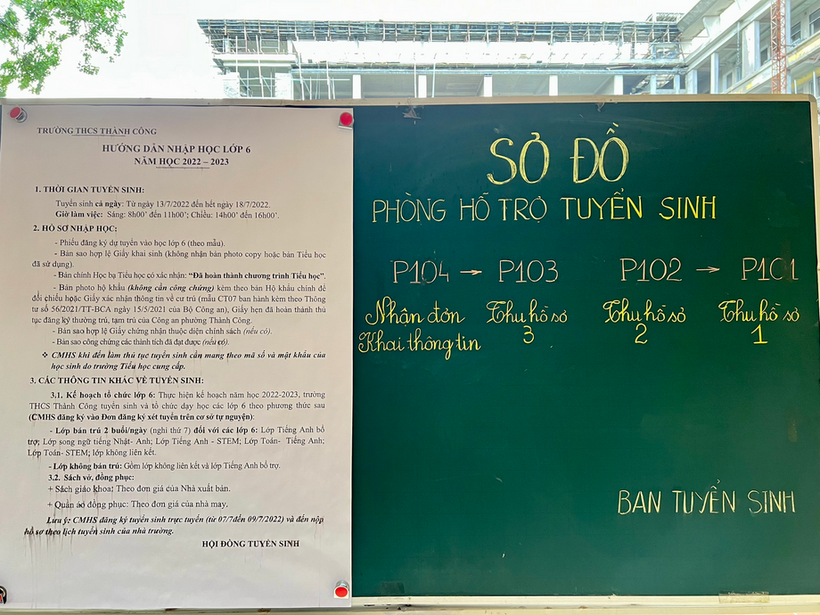 TRƯỜNG THCS THÀNH CÔNG
HƯỚNG DẪN NHẬP HỌC LỚP 6
NĂM HỌC 2022 – 2023
1. THỜI GIAN TUYỂN SINH:
Tuyển sinh cả ngày: Từ ngày 13/7/2022 đến hết ngày 18/7/2022.
Giờ làm việc: Sáng: 8h00' đến 11h00'; Chiều: 14h00' đến 16h00'.
2. HỒ SƠ NHẬP HỌC:
- Phiếu đăng ký dự tuyển vào học lớp 6 (theo mẫu).
- Bản sao hợp lệ Giấy khai sinh (không nhận bản photo copy hoặc bản Tiểu học
đã sử dụng).
- Bản chính Học bạ Tiểu học có xác nhận: "Đã hoàn thành chương trình Tiểu học".
- Bản photo hộ khẩu (không cần công chứng) kèm theo bản Hộ khẩu chính để
đối chiếu hoặc Giấy xác nhận thông tin về cư trú (mẫu CT07 ban hành kèm theo Thông
tư số 56/2021/TT-BCA ngày 15/5/2021 của Bộ Công an), Giấy hẹn đã hoàn thành thủ
tục đăng ký thường trú, tạm trú của Công an phường Thành Công.
- Bản sao hợp lệ Giấy chứng nhận thuộc diện chính sách (nếu có).
- Bản sao công chứng các thành tích đã đạt được (nếu có).
❖ CMHS khi đến làm thủ tục tuyển sinh cần mang theo mã số và mật khẩu của
học sinh do trường Tiểu học cung cấp.
3. CÁC THÔNG TIN KHÁC VỀ TUYỂN SINH:
3.1. Kế hoạch tổ chức lớp 6: Thực hiện kế hoạch năm học 2022-2023, trường
THCS Thành Công tuyển sinh và tổ chức dạy học các lớp 6 theo phương thức sau
(CMHS đăng ký vào Đơn đăng ký xét tuyển trên cơ sở tự nguyện):
- Lớp bán trú 2 buổi/ngày (nghỉ thứ 7) đối với các lớp 6: Lớp Tiếng Anh bổ
trợ; Lớp song ngữ tiếng Nhật- Anh; Lớp Tiếng Anh - STEM; Lớp Toán- Tiếng Anh;
Lớp Toán- STEM; lớp không liên kết.
- Lớp không bán trú: Gồm lớp không liên kết và lớp Tiếng Anh bổ trợ.
3.2. Sách vở, đồng phục:
+ Sách giáo khoa: Theo đơn giá của Nhà xuất bản.
+ Quần áo đồng phục: Theo đơn giá của nhà may.
Lưu ý: CMHS đăng ký tuyển sinh trực tuyến (từ 07/7đến 09/7/2022) và đến nộp
hồ sơ theo lịch tuyển sinh của nhà trường.
HỘI ĐỒNG TUYỂN SINH
SƠ ĐỒ
PHÒNG HỖ TRỢ TUYỂN SINH
P104 → P103 P102 → P101
Nhận đơn Thu hồ sơ Thu hồ sơ Thu hồ sơ
Khai thông tin 3 2 1
BAN TUYỂN SINH